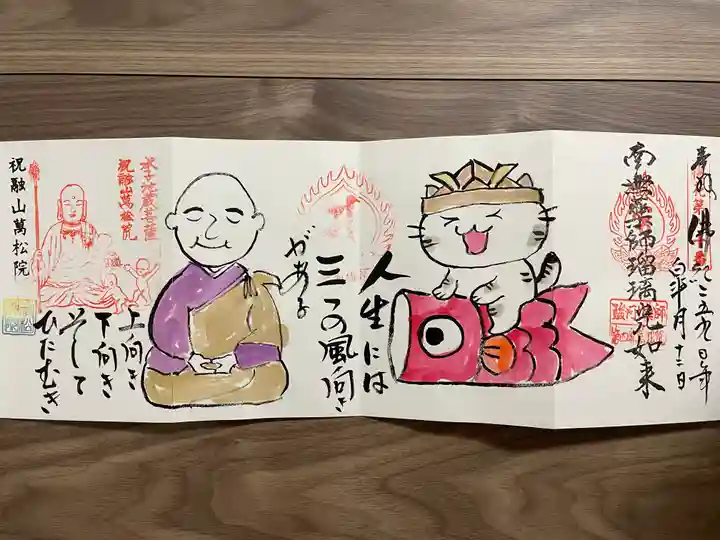 奉拝
佛紀二五九〇年
白半月十二日
南無薬師瑠璃光如来
人生には
三つの風向き
がある
上向き
下向き
そして
ひたむき
水子地蔵菩薩
祝融山萬松院
祝融山萬松院